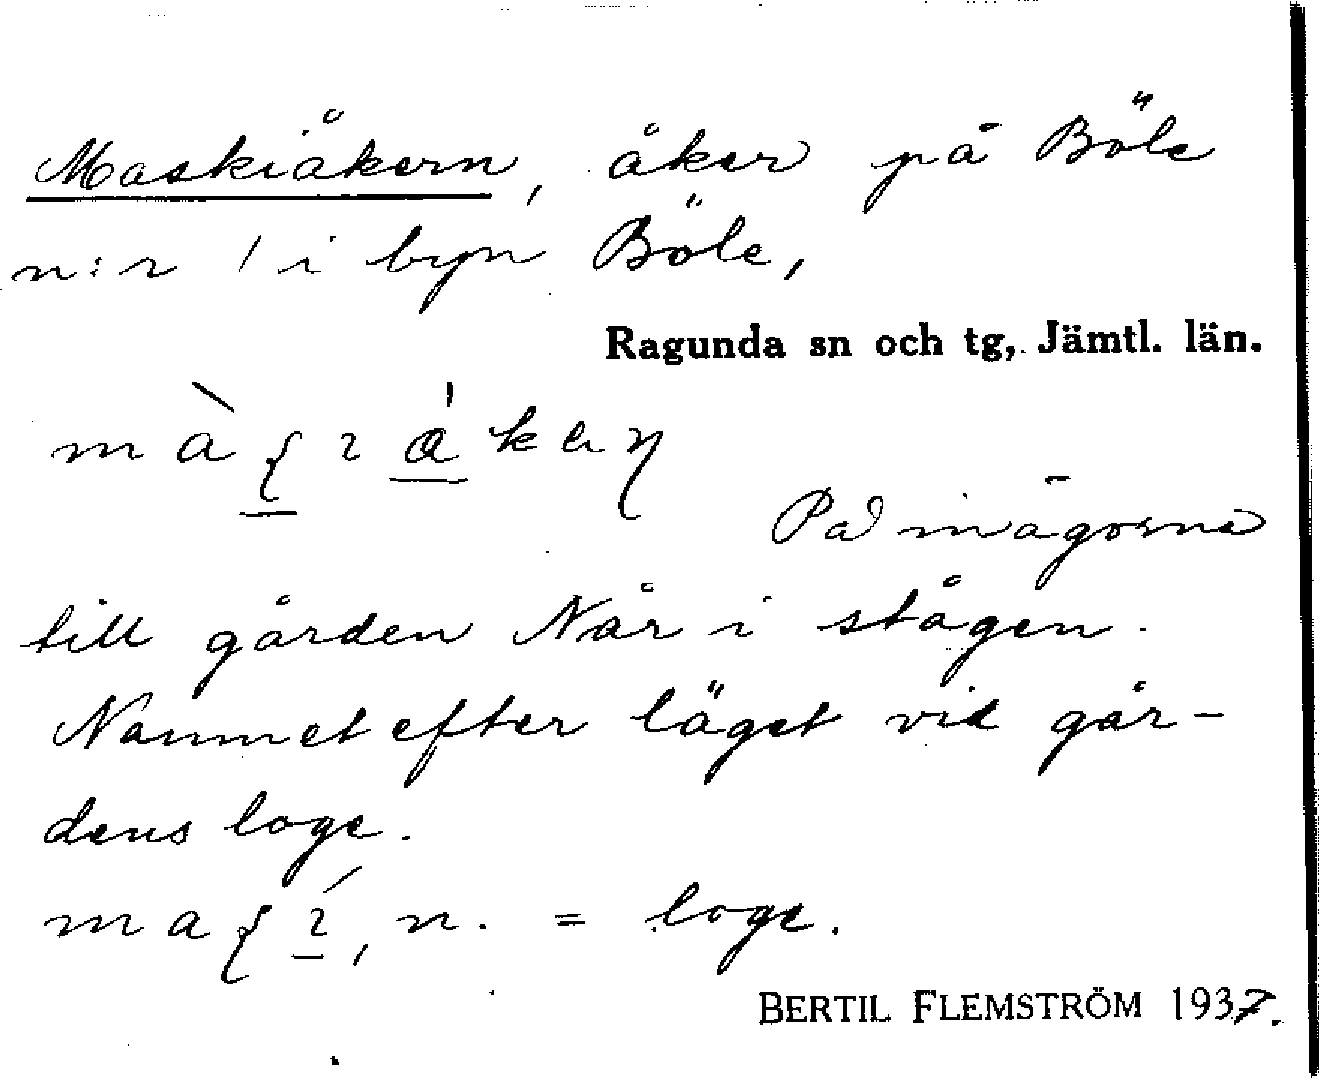 Maskiåkern, åker på Böle
n:r 1 i byn Böle,
Ragunda sn och tg, Jämtl. län.
På inägorna
till gården Når i stågen.
Namnet efter läget vid går-
dens loge.
n. = loge.
BERTIL FLEMSTRÖM 1937.